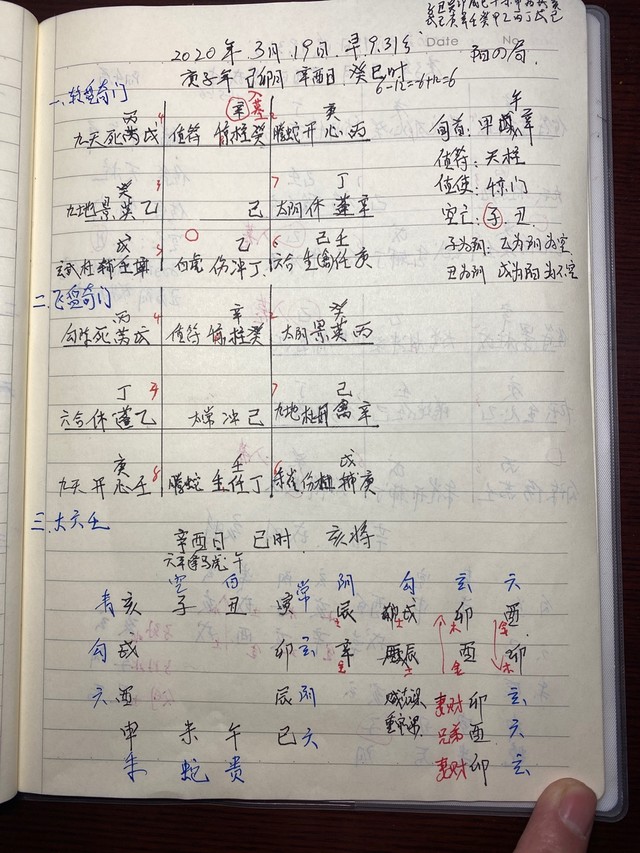 Date
No.
2020年.3月.19日.早9.31分
阳四局.
庚子年 己卯月 辛酉日.癸巳时
6-12=-6+12=6
一、转盘奇门
丙 4 辛 入墓 2 庚
九天死芮戊 值符 惊柱癸 腾蛇开心丙
癸 3 7 丁
九地景英乙 己 太阴休蓬辛
戊 乙 6 己壬
玄武杜辅壬 白虎 伤冲丁 六合 生禽任庚
午
旬首:甲 辛
值符:天柱
值使:惊门
空亡:子.丑
子为阳 乙为阴 为空
丑为阴 戊为阳为不空
二、飞盘奇门
丙 4 辛 2 癸
勾陈死芮戊 值符 惊柱癸 太阴景英丙
丁 7 己
六合休蓬乙 太常 冲己 九地 禽辛
庚 8 壬 6 戊
九天开心壬 腾蛇 生任丁 朱雀伤 辅庚
三、大六壬
辛酉日 巳时 亥将
六辛逢马虎午
空 白 常 阴 勾 玄 六
青 亥 子 丑 寅 辰 戌 卯 酉
勾 戌 卯 玄 辛 辰 酉 卯
六 酉 辰 阴 妻财 卯 玄
申 未 午 巳 六 兄弟 酉 六
朱 蛇 贵 妻财 卯 玄